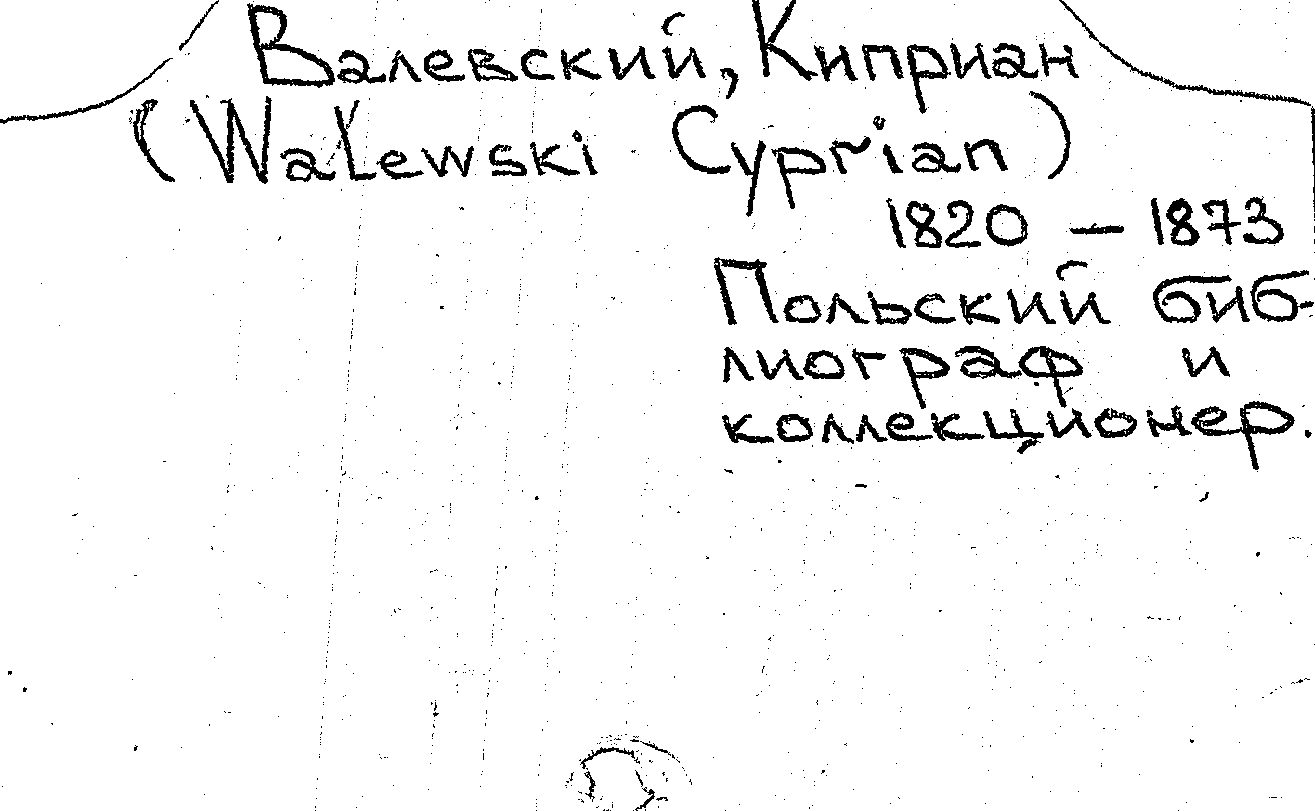 Валевский, Киприан
(Walewski Cyprian)
1820 – 1873
Польский биб-
лиограф и
коллекционер.